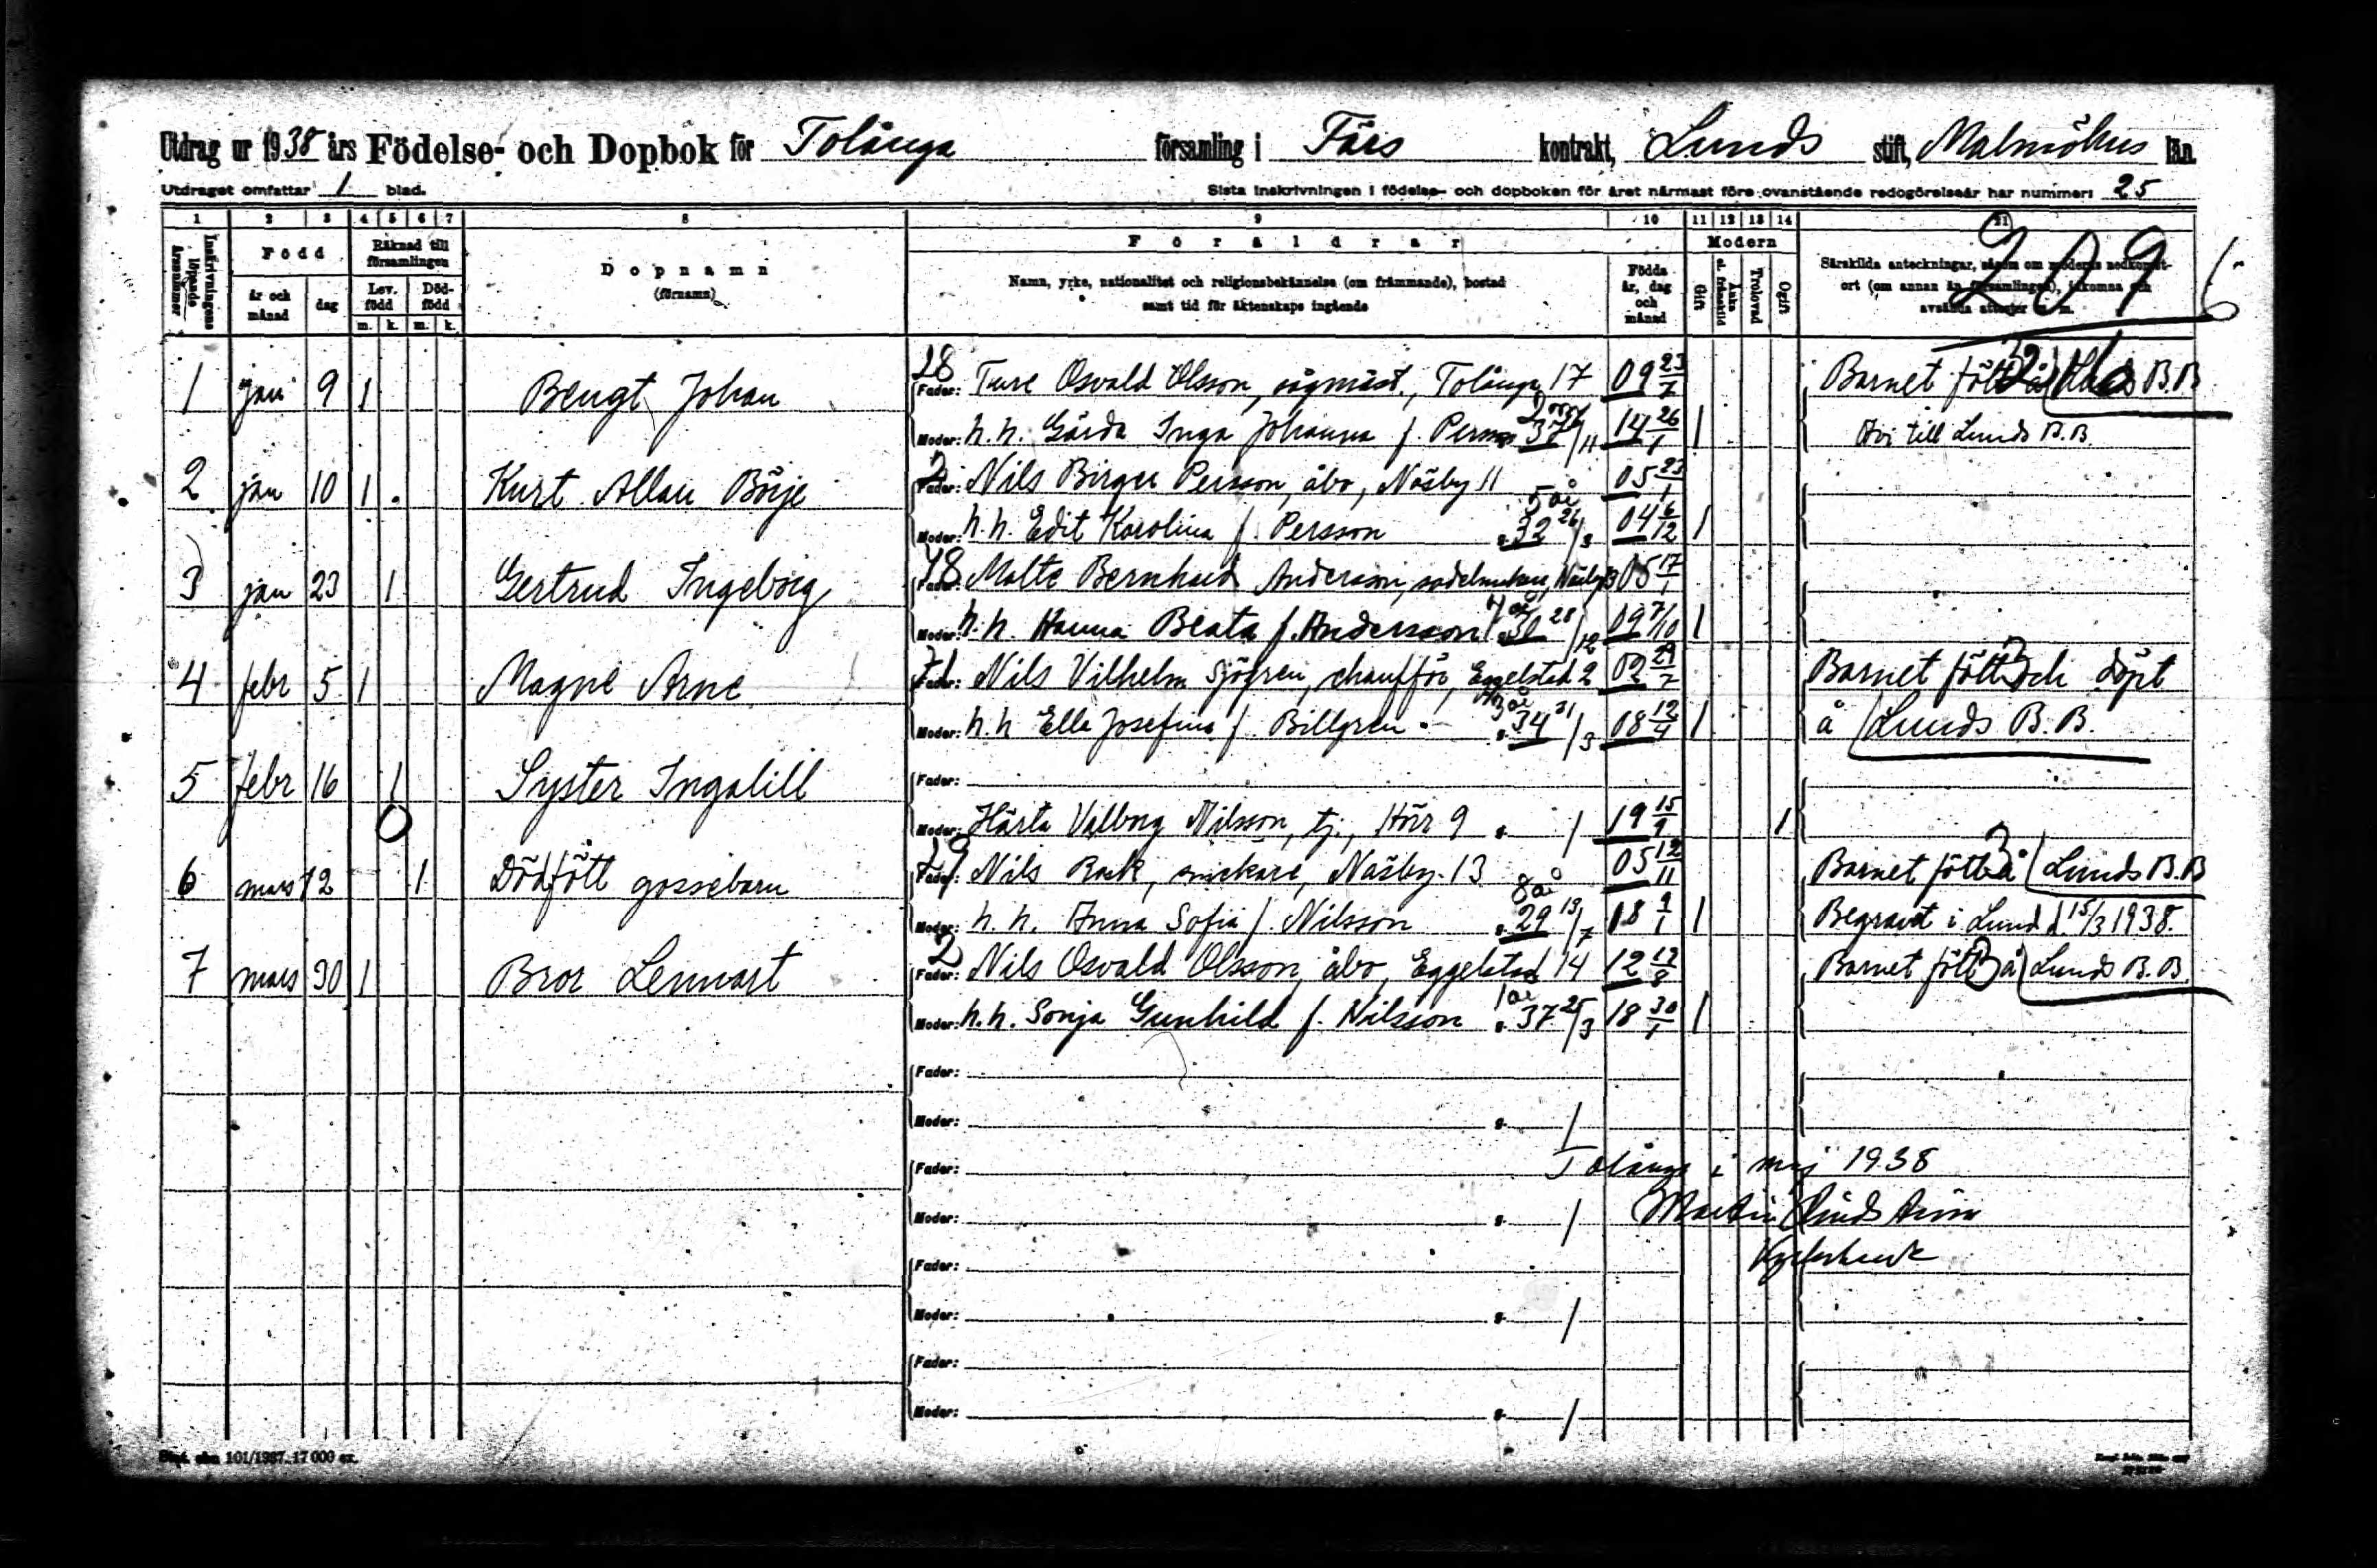 Utdrag ur 1938 års Födelse- och Dopbok för Tolånga församling i Färs kontrakt, Lunds stift, Malmöhus län.
Utdraget omfattar 1 blad. Sista inskrivningen i födelse- och dopboken för året närmast före ovanstående redogörelseår har nummer: 25
1 2 3 4 5 6 7 8 9 10 11 12 13 14 21
Inskrivningens löpande årsnummer
Född
år och månad
dag
Räknad till församlingen
Lev. född
Död-född
m. k. m. k.
Dopnamn
(förnamn)
Föräldrar
Namn, yrke, nationalitet och religionsbekännelse (om främmande), bostad
samt tid för äktenskaps ingående
Födda år, dag och månad
Modern
Gift
Änka el. frånskild
Trolovad
Ogift
Särskilda anteckningar, såsom om moderns nedkomst-
ort (om annan än församlingen), inkomna och
avsända attester m. m.
209
1 jan 9 1 Bengt Johan 28 Fader: Ture Osvald Olsson, sågmäst., Tolånga 17 09 23/7 Barnet fött å Lunds B.B
Moder: h. h. Gärda Inga Johanna f. Persson 37 /11 14 26/1 1 Avi till Lunds B.B.
2 jan 10 1 Kurt Allan Börje 2 Fader: Nils Birger Persson, åbo, Näsby 11 05 23/1
Moder: h. h. Edit Karolina f. Persson 5 år g. 32 26/3 04 6/12 1
3 jan 23 1 Gertrud Ingeborg 48 Fader: Malte Bernhard Andersson, sadelmakare, Näsby 3 05 17/1
Moder: h. h. Hanna Beata f. Andersson 28/12 09 7/10 1
4 febr 5 1 Magne Arne 71 Fader: Nils Vilhelm Sjögren, chaufför, Eggelstad 2 02 29/7 Barnet fött och döpt
Moder: h. h Ella Josefina f. Billgren 3 år g. 34 31/3 08 12/4 1 å Lunds B. B.
5 febr 16 1 Syster Ingalill Fader:
Moder: Härta Valborg Nilsson, tj., Hörr 9 g. / 19 15/9 1
6 mars 12 1 Dödfött gossebarn 29 Fader: Nils Rask, snickare, Näsby 13 05 12/11 Barnet fött å Lunds B.B
Moder: h. h. Anna Sofia f. Nilsson 8 år g. 29 13/7 18 9/1 1 Begravet i Lund d. 15/3 1938.
7 mars 30 1 Bror Lennart 2 Fader: Nils Osvald Olsson, åbo, Eggelstad 14 12 12/8 Barnet fött å Lunds B.B.
Moder: h. h. Sonja Gunhild f. Nilsson 1 år g. 37 25/3 18 30/1 1
Fader:
Moder: g. /
Fader: Tolånga i maj 1938
Moder: g. / Martin Lindström
Fader: Kyrkoherde
Moder: g. /
Fader:
Moder: g. /
101/1937. 17 000 ex.